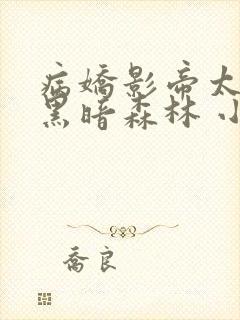 病嬌影帝太
黑暗森林 小
喬良